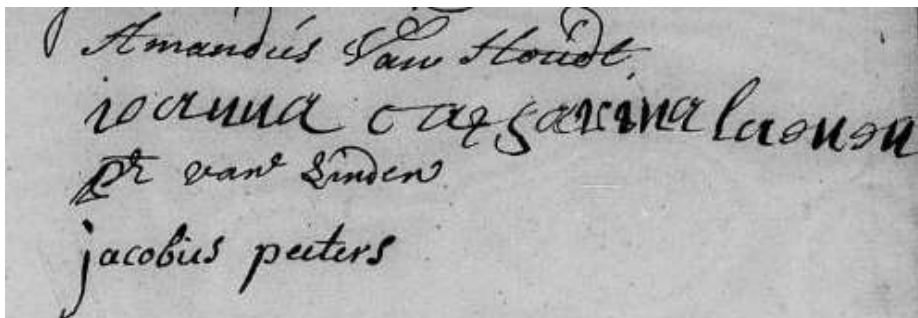 Amandus Van Houdt
joanna catharina
Pr van Linden
jacobus peeters